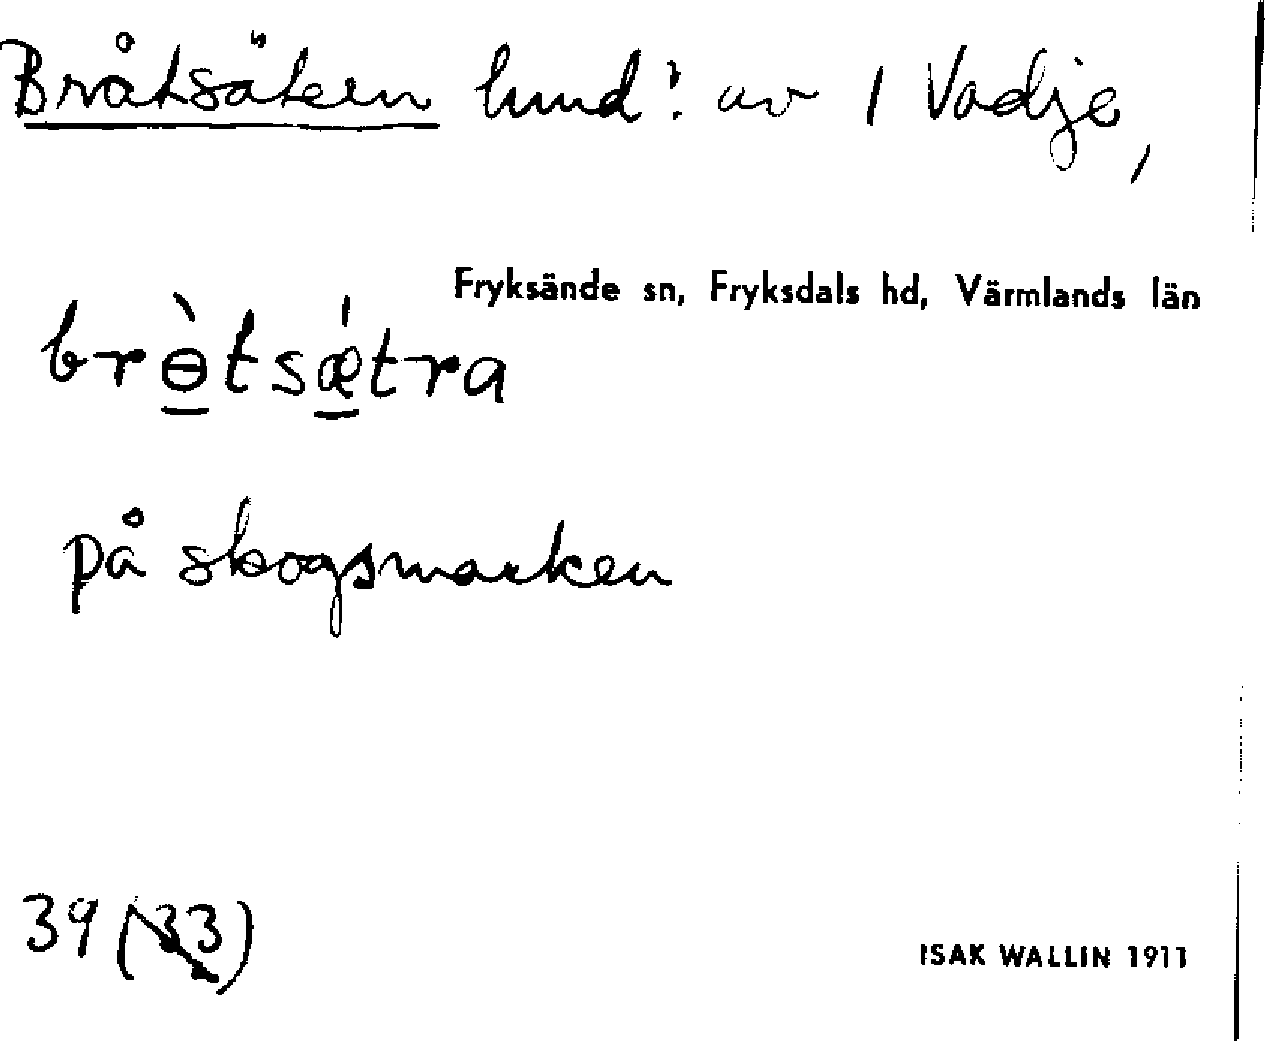 Bråtsäteren lund. av 1 Vadje,
Fryksände sn, Fryksdals hd, Värmlands län
brɵ̀tsǽtra
på skogsmarken
39 (33)
ISAK WALLIN 1911